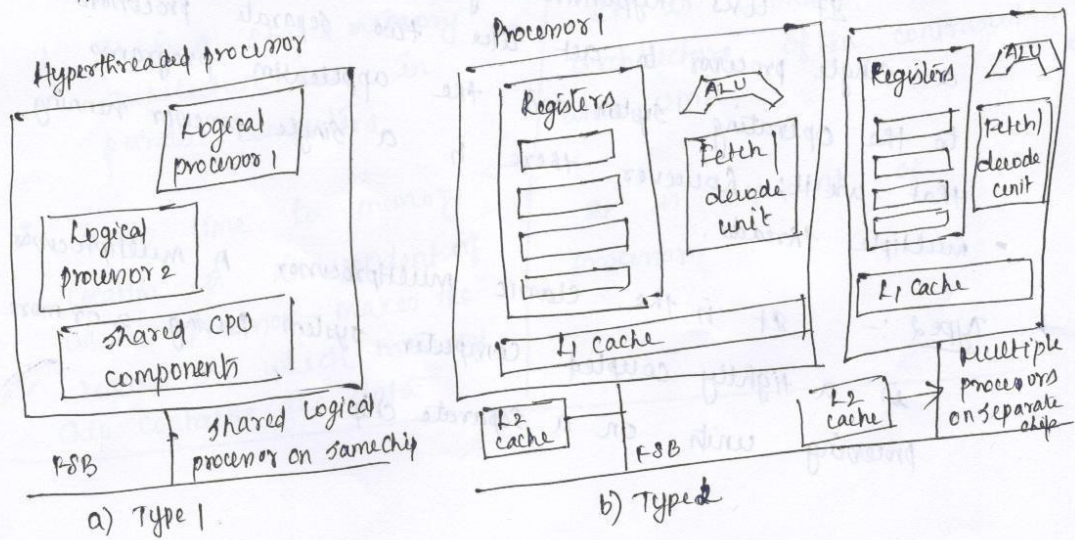 Hyperthreaded processor
Logical
processor 1
Logical
processor 2
Shared CPU
components
FSB
Shared Logical
processor on same chip
a) Type 1
Processor 1
Registers
ALU
Fetch
decode
unit
L1 cache
cache
FSB
L2
cache
Registers
ALU
Fetch/
decode
unit
L1 cache
Multiple
processors
on separate
chip
b) Type 2